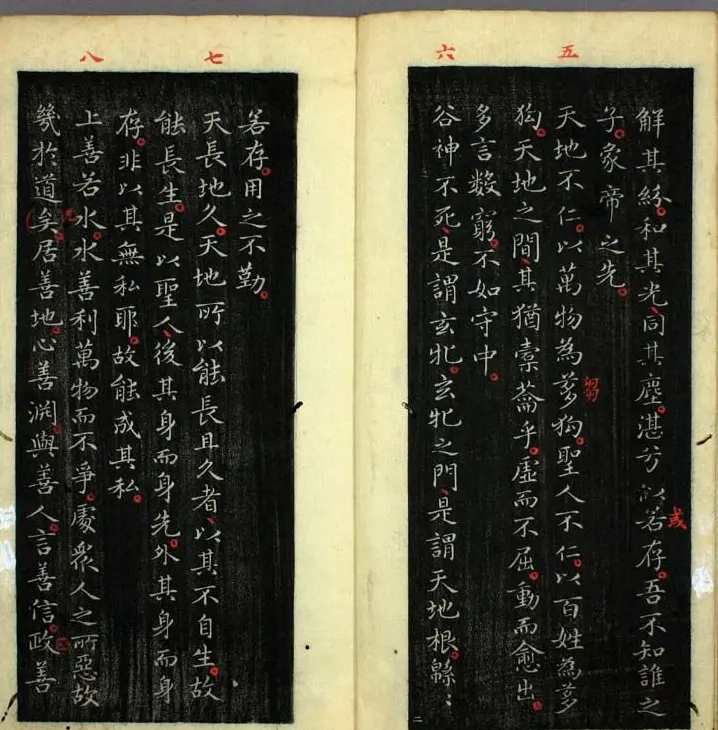 五
解其紛。和其光、同其塵。湛兮似若存。吾不知誰之
或
子。象帝之先。
天地不仁。以萬物為芻狗。聖人不仁。以百姓為芻
芻
狗。天地之間、其猶橐籥乎。虛而不屈。動而愈出。
多言數窮。不如守中。
六
谷神不死、是謂玄牝。玄牝之門、是謂天地根。緜〻
二
若存。用之不勤。
七
天長地久。天地所以能長且久者、以其不自生。故
能長生。是以聖人、後其身而身先。外其身而身
存。非以其無私耶。故能成其私。
八
上善若水。水善利萬物而不爭。處衆人之所惡。故
幾於道矣。居善地。心善淵。與善人。言善信。政善